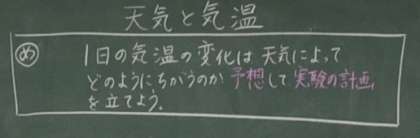 天気と気温
め 1日の気温の変化は天気によって
どのようにちがうのか予想して実験の計画
を立てよう。